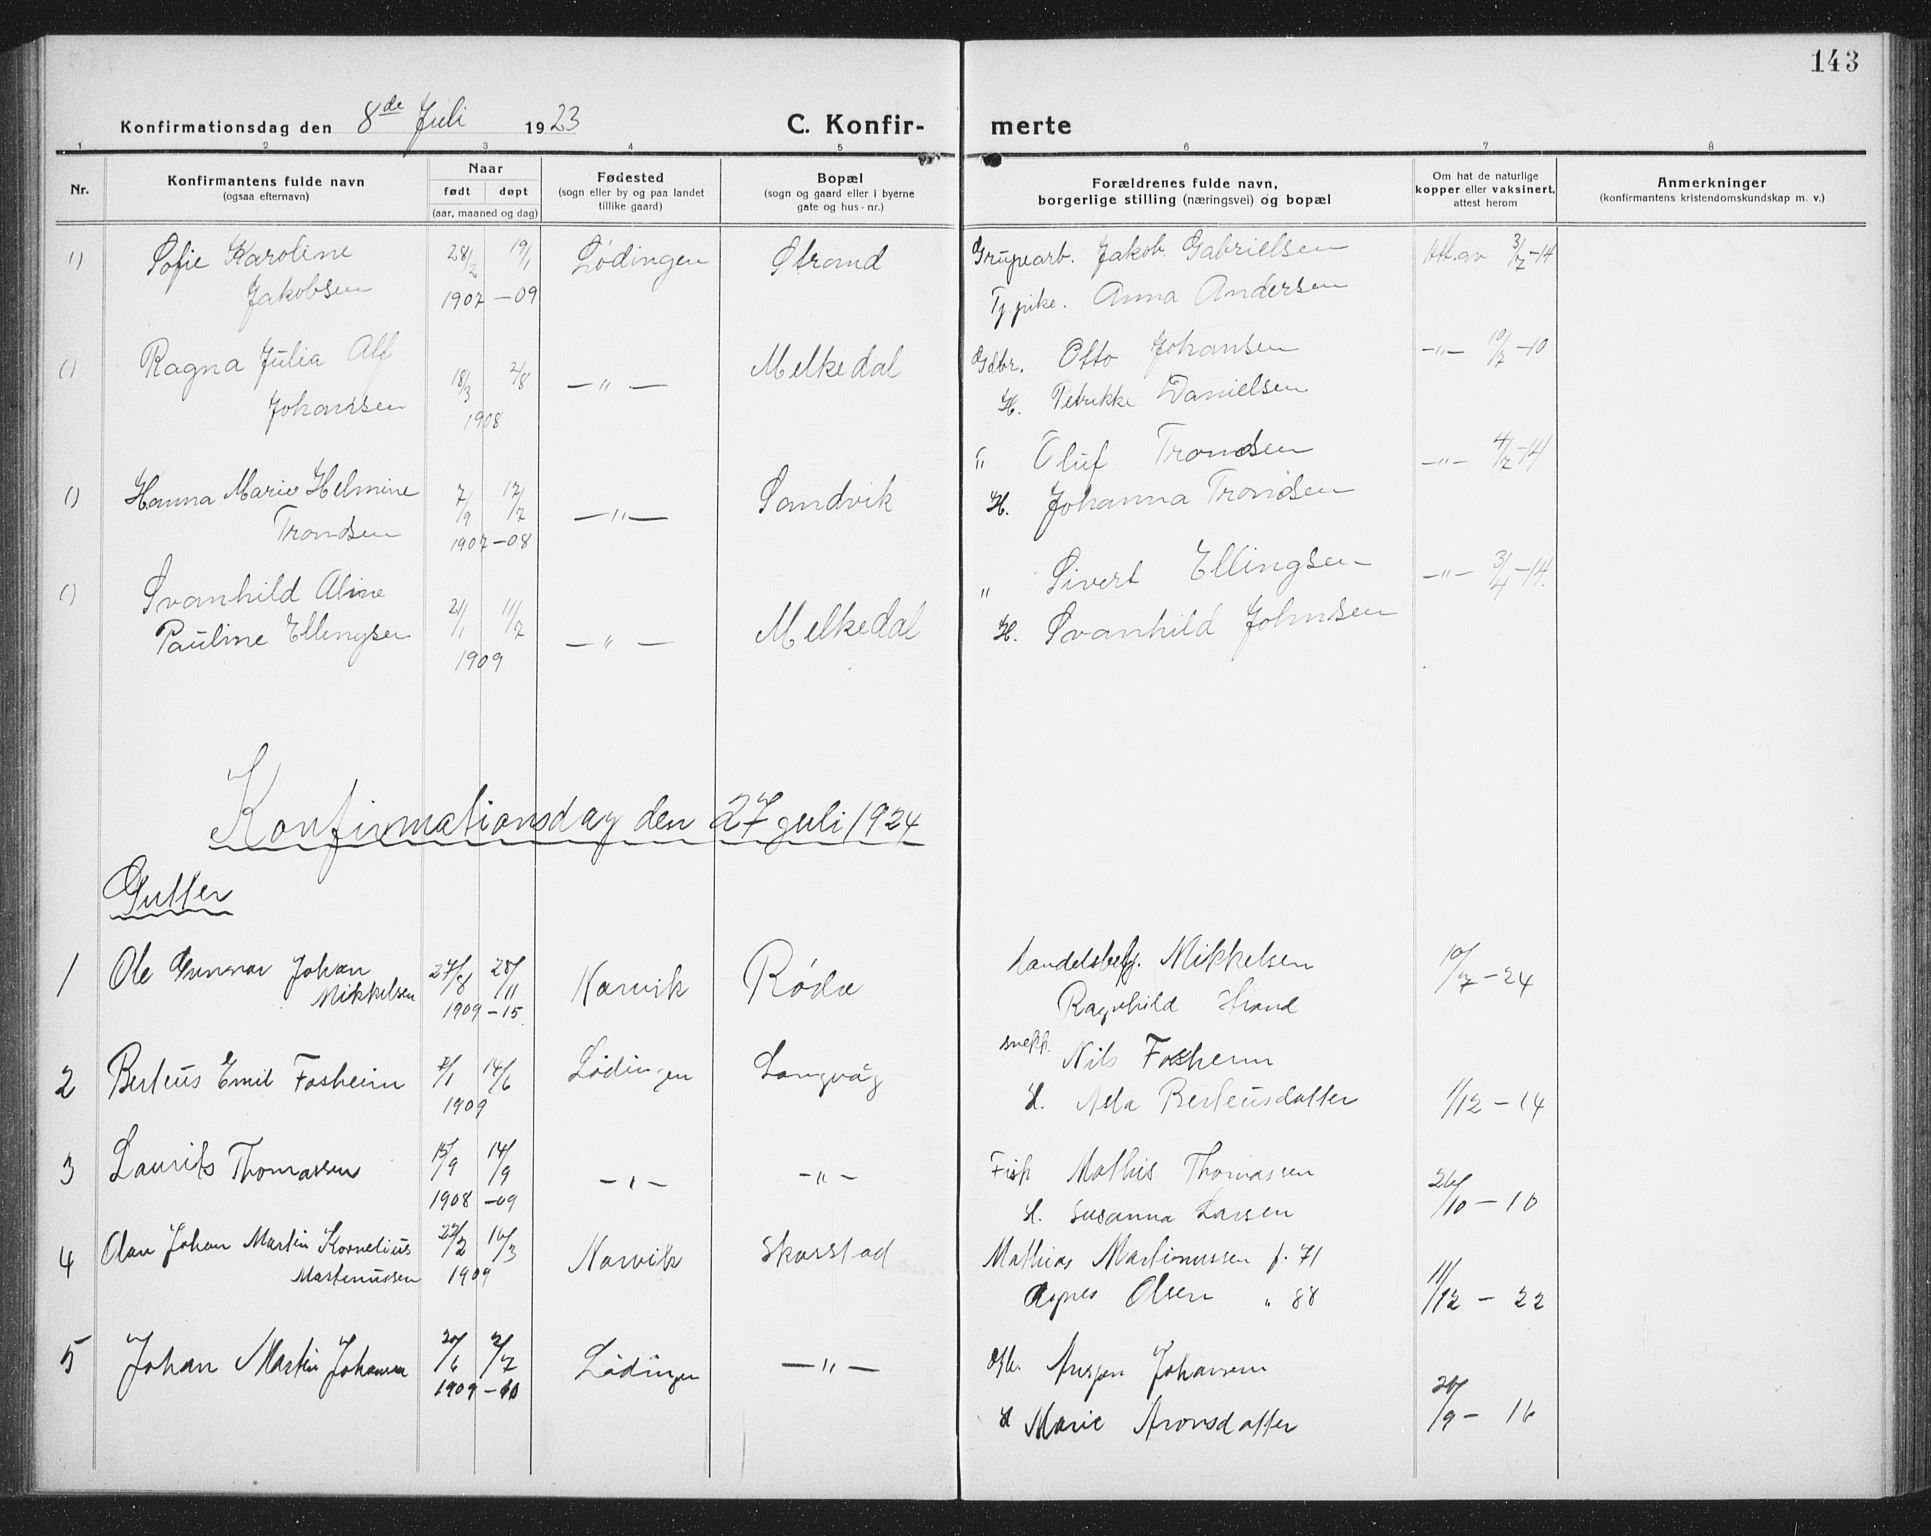 143
Konfirmationsdag den 8de Juli 1923 C. Konfir- merte
1 2 3 4 5 6 7 8
Nr. Konfirmantens fulde navn (ogsaa efternavn) Naar født døpt (aar, maaned og dag) Fødested (sogn eller by og paa landet tillike gaard) Bopæl (sogn og gaard eller i byerne gate og hus-nr.) Forældrenes fulde navn, borgerlige stilling (næringsvei) og bopæl Om hat de naturlige kopper eller vaksinert, attest herom Anmerkninger (konfirmantens kristendomskundskap m. v.)
1) Sofie Karoline 28/2 19/1 Lødingen Strand Grupearb. Jakob Gabrielsen Att. av 3/7-14
Jakobsen 1907 -09 Tj.pike. Anna Andersen
() Ragna Julia Alf 18/3 2/8 -"- Melkedal Gdbr. Otto Johansen -"- 10/7-10
Johansen 1908 H. Petrikke Danielsen
() Hanna Marie Helmine 7/9 17/7 -"- Sandvik " Oluf Trondsen -"- 4/7-14
Trondsen 1907-08 H. Johanna Trondsen
() Svanhild Aline 21/1 11/7 -"- Melkedal " Sivert Ellingsen -"- 3/4-14.
Pauline Ellingsen 1909 H. Svanhild Johnsen
Konfirmationsdag den 27 juli 1924
Gutter
1 Ole Gunnar Johan 27/8 28/11 Narvik Røda Handelsbetj. Mikkelsen 10/7-24
Mikkelsen 1909-15. Ragnhild Strand
2 Berteus Emil Fosheim /1 14/6 Lødingen Langvåg snekk. Nils Fosheim
1909 H. Berteusdatter 1/12-14
3 Laurits Thomassen 15/9 14/9 -"- -"- Fisk Mathis Thomassen 26/10-10
1908 -09 H. Susanna Larsen
4 Olav Johan Martin Kornelius 22/2 16/3 Narvik Skarstad Mathias Martinussen f. 71 11/12-22
Martinussen 1909 Agnes Olsen " 88
5 Johan Martin Johansen 20/6 2/7 Lødingen -"- Johansen 26/9-16
1909-10 H Marie Aronsdatter